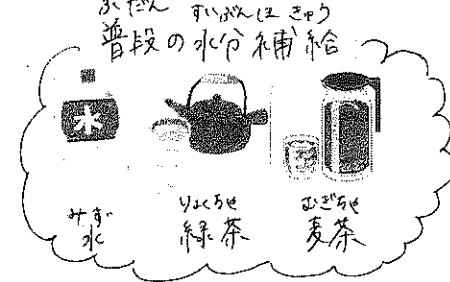 ふだん すいぶんほきゅう
普段の水分補給
水
みず りょくちゃ むぎちゃ
水 緑茶 麦茶